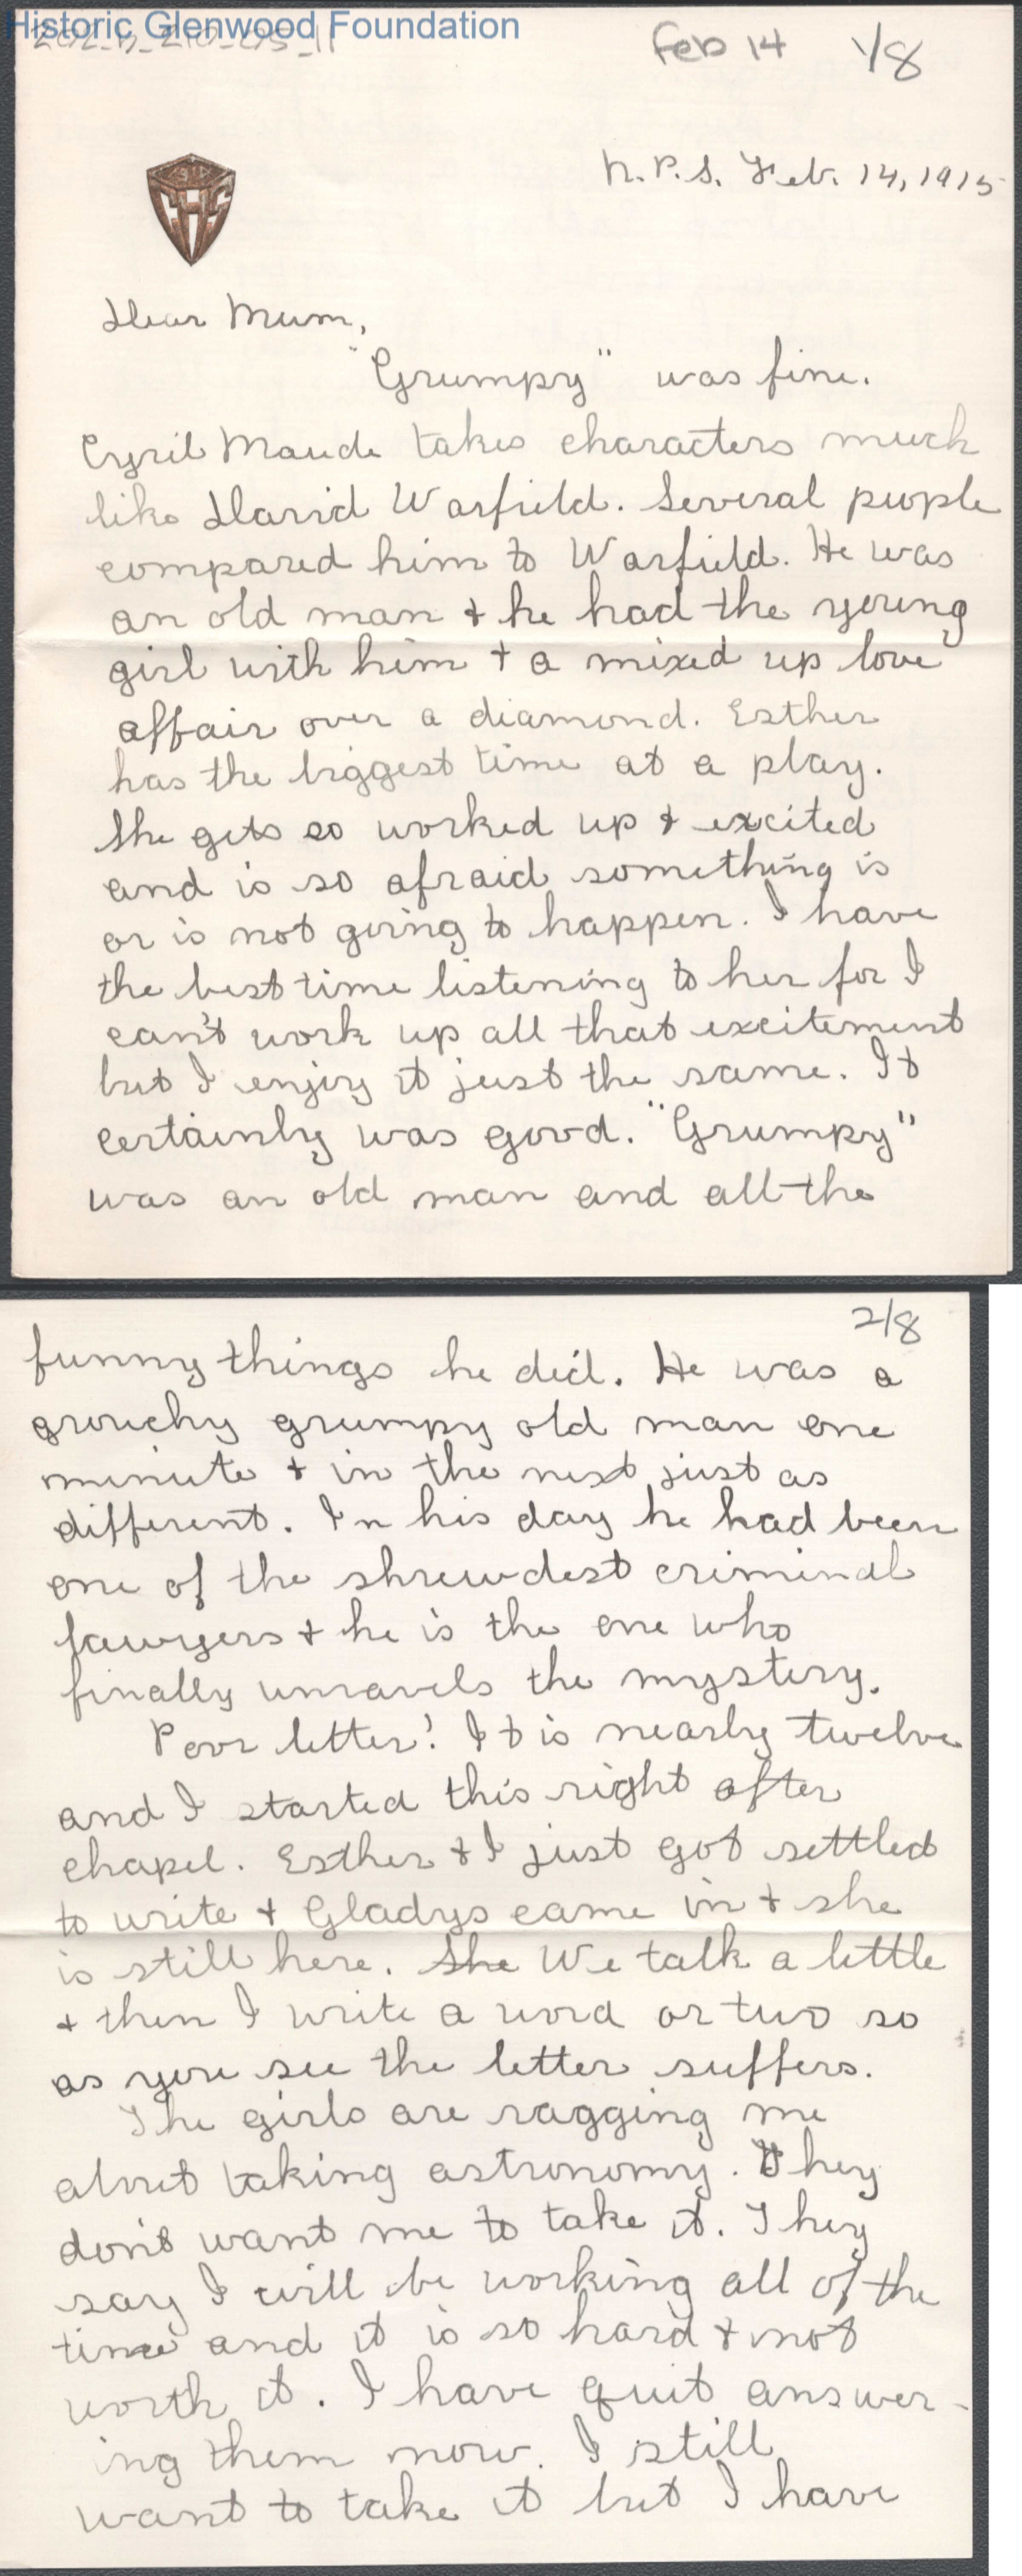 Historic Glenwood Foundation
202-b-210-05-11
Feb 14 1/8
N.P.S. Feb. 14, 1915
Dear Mum,
"Grumpy" was fine.
Cyril Maude takes characters much
like David Warfield. Several people
compared him to Warfield. He was
an old man + he had the young
girl with him + a mixed up love
affair over a diamond. Esther
has the biggest time at a play.
She gets so worked up + excited
and is so afraid something is
or is not going to happen. I have
the best time listening to her for I
can't work up all that excitement
but I enjoy it just the same. It
certainly was good. "Grumpy"
was an old man and all the
2/8
funny things he did. He was a
grouchy grumpy old man one
minute + in the next just as
different. In his day he had been
one of the shrewdest criminal
lawyers + he is the one who
finally unravels the mystery.
Poor letter! It is nearly twelve
and I started this right after
chapel. Esther + I just got settled
to write + Gladys came in + she
is still here. She We talk a little
+ then I write a word or two so
as you see the letter suffers.
The girls are ragging me
about taking astronomy. They
don't want me to take it. They
say I will be working all of the
time and it is so hard + not
worth it. I have quit answer-
ing them now. I still
want to take it but I have